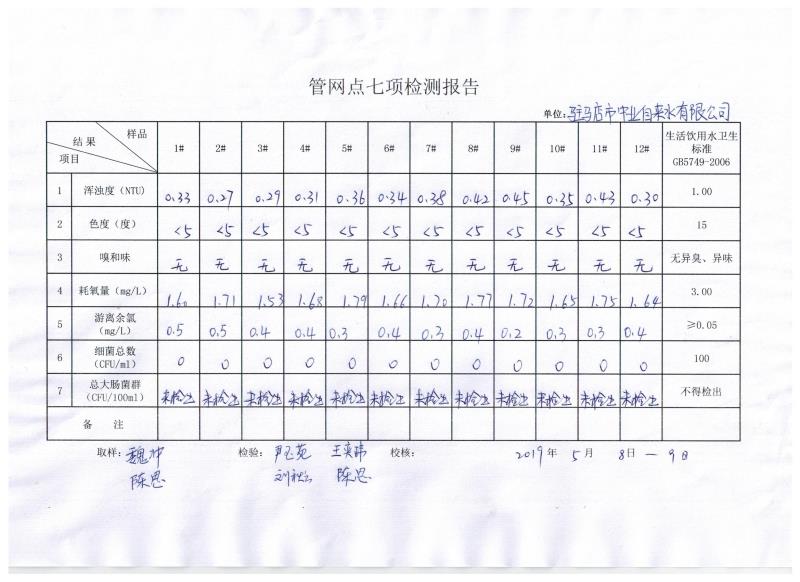 管网点七项检测报告
单位：驻马店市中业自来水有限公司
结果 样品 项目 1# 2# 3# 4# 5# 6# 7# 8# 9# 10# 11# 12# 生活饮用水卫生标准 GB5749-2006
1 浑浊度（NTU） 0.33 0.27 0.29 0.31 0.36 0.34 0.38 0.42 0.45 0.35 0.43 0.30 1.00
2 色度（度） <5 <5 <5 <5 <5 <5 <5 <5 <5 <5 <5 <5 15
3 嗅和味 无 无 无 无 无 无 无 无 无 无 无 无 无异臭、异味
4 耗氧量（mg/L） 1.60 1.71 1.53 1.68 1.79 1.66 1.70 1.77 1.72 1.65 1.75 1.64 3.00
5 游离余氯（mg/L） 0.5 0.5 0.4 0.4 0.3 0.4 0.3 0.4 0.2 0.3 0.3 0.4 ≥0.05
6 细菌总数（CFU/ml） 0 0 0 0 0 0 0 0 0 0 0 0 100
7 总大肠菌群（CFU/100ml） 未检出 未检出 未检出 未检出 未检出 未检出 未检出 未检出 未检出 未检出 未检出 未检出 不得检出
备 注
取样： 魏冲 检验： 校核： 2019年 5月 8日—9日
陈思 陈思